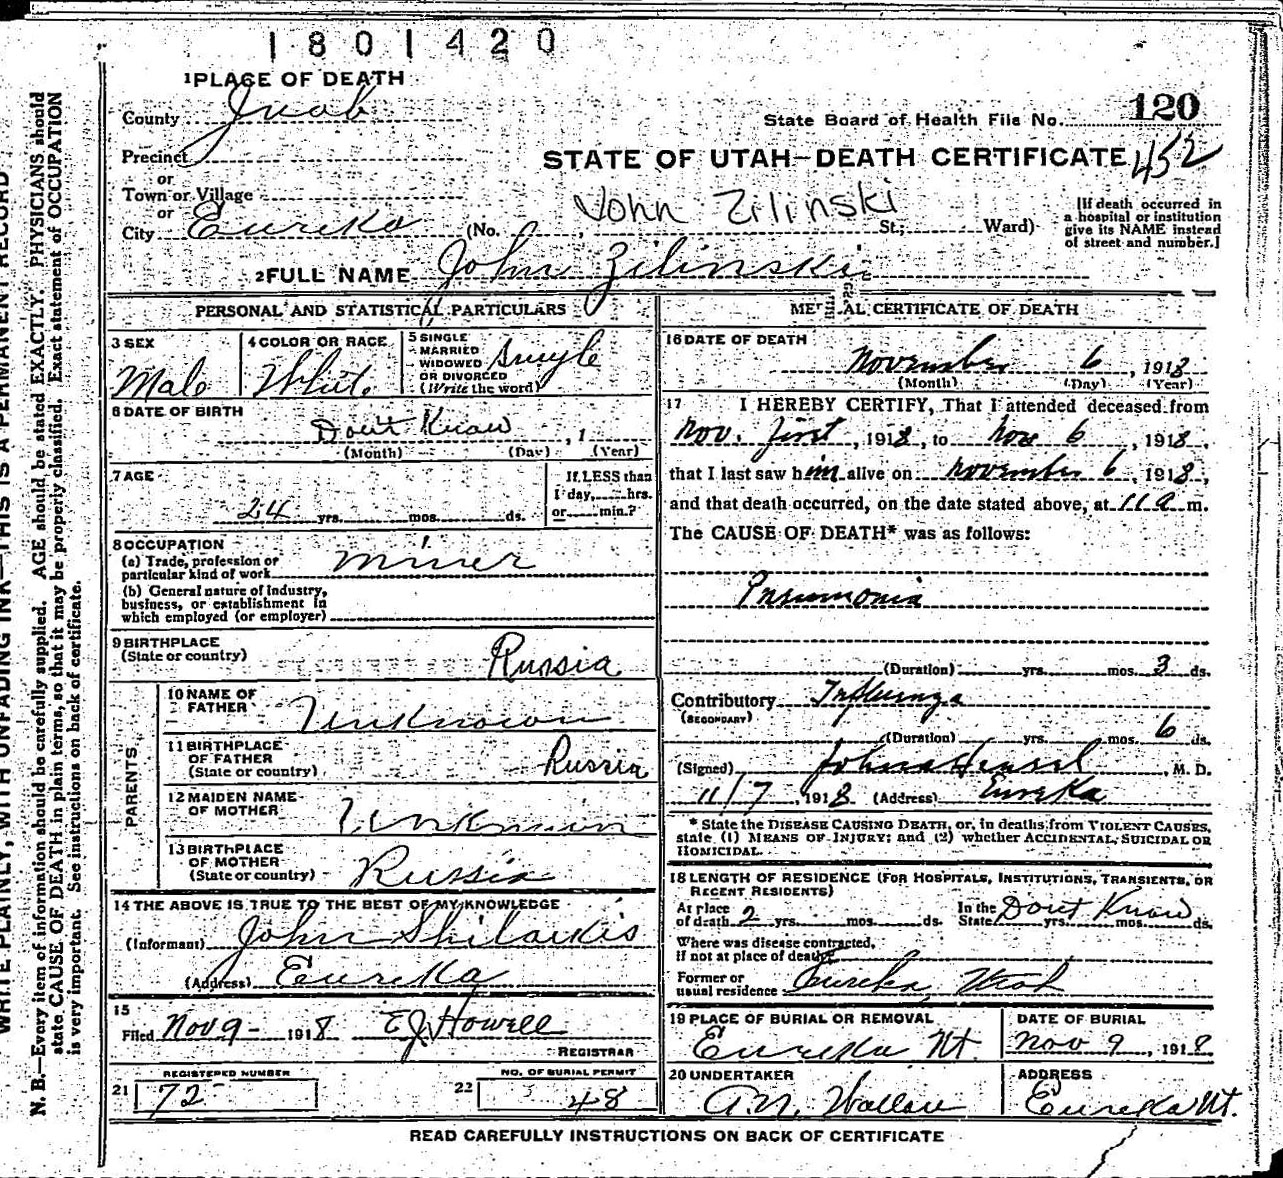 1801420
1 PLACE OF DEATH
County Juab
State Board of Health File No. 120
Precinct
STATE OF UTAH—DEATH CERTIFICATE 452
or
Town or Village
or
John Zilinski
City Eureka (No. , St; Ward)
[If death occurred in
a hospital or institution
give its NAME instead
of street and number.]
2 FULL NAME John Zilinski
PERSONAL AND STATISTICAL PARTICULARS
3 SEX
Male
4 COLOR OR RACE
White
5 SINGLE
MARRIED
WIDOWED
OR DIVORCED
(Write the word)
Single
6 DATE OF BIRTH
Dont Know , 1
(Month) (Day) (Year)
7 AGE
24 yrs. mos. ds.
If LESS than
1 day, hrs.
or min.?
8 OCCUPATION
(a) Trade, profession or
particular kind of work Miner
(b) General nature of industry,
business, or establishment in
which employed (or employer)
9 BIRTHPLACE
(State or country) Russia
PARENTS
10 NAME OF
FATHER Unknown
11 BIRTHPLACE
OF FATHER
(State or country) Russia
12 MAIDEN NAME
OF MOTHER Unknown
13 BIRTHPLACE
OF MOTHER
(State or country) Russia
14 THE ABOVE IS TRUE TO THE BEST OF MY KNOWLEDGE
(Informant) John Shilaukis
(Address) Eureka
15
Filed Nov 9 - 1918 E J Howell
REGISTRAR
REGISTERED NUMBER
21 72
NO. OF BURIAL PERMIT
22 48
MEDICAL CERTIFICATE OF DEATH
16 DATE OF DEATH
November 6 , 1918
(Month) (Day) (Year)
17 I HEREBY CERTIFY, That I attended deceased from
Nov. first , 1918, to Nov 6 , 1918,
that I last saw him alive on November 6 , 1918,
and that death occurred, on the date stated above, at 11 a m.
The CAUSE OF DEATH* was as follows:
Pneumonia
(Duration) yrs. mos. 3 ds.
Contributory Influenza
(SECONDARY)
(Duration) yrs. mos. 6 ds.
(Signed) , M. D.
11/7 , 1918 (Address) Eureka
* State the DISEASE CAUSING DEATH, or, in deaths from VIOLENT CAUSES,
state (1) MEANS OF INJURY; and (2) whether ACCIDENTAL, SUICIDAL OR
HOMICIDAL.
18 LENGTH OF RESIDENCE (FOR HOSPITALS, INSTITUTIONS, TRANSIENTS, OR
RECENT RESIDENTS)
At place
of death 2 yrs. mos. ds.
In the
State yrs. mos. ds.
Dont Know
Where was disease contracted,
if not at place of death?
Former or
usual residence Eureka, Utah
19 PLACE OF BURIAL OR REMOVAL
Eureka Ut.
DATE OF BURIAL
Nov 9 , 1918
20 UNDERTAKER
A.N. Wallace
ADDRESS
Eureka Ut.
READ CAREFULLY INSTRUCTIONS ON BACK OF CERTIFICATE
WRITE PLAINLY, WITH UNFADING INK—THIS IS A PERMANENT RECORD
N. B.—Every item of information should be carefully supplied. AGE should be stated EXACTLY. PHYSICIANS should
state CAUSE OF DEATH in plain terms, so that it may be properly classified. Exact statement of OCCUPATION
is very important. See instructions on back of certificate.